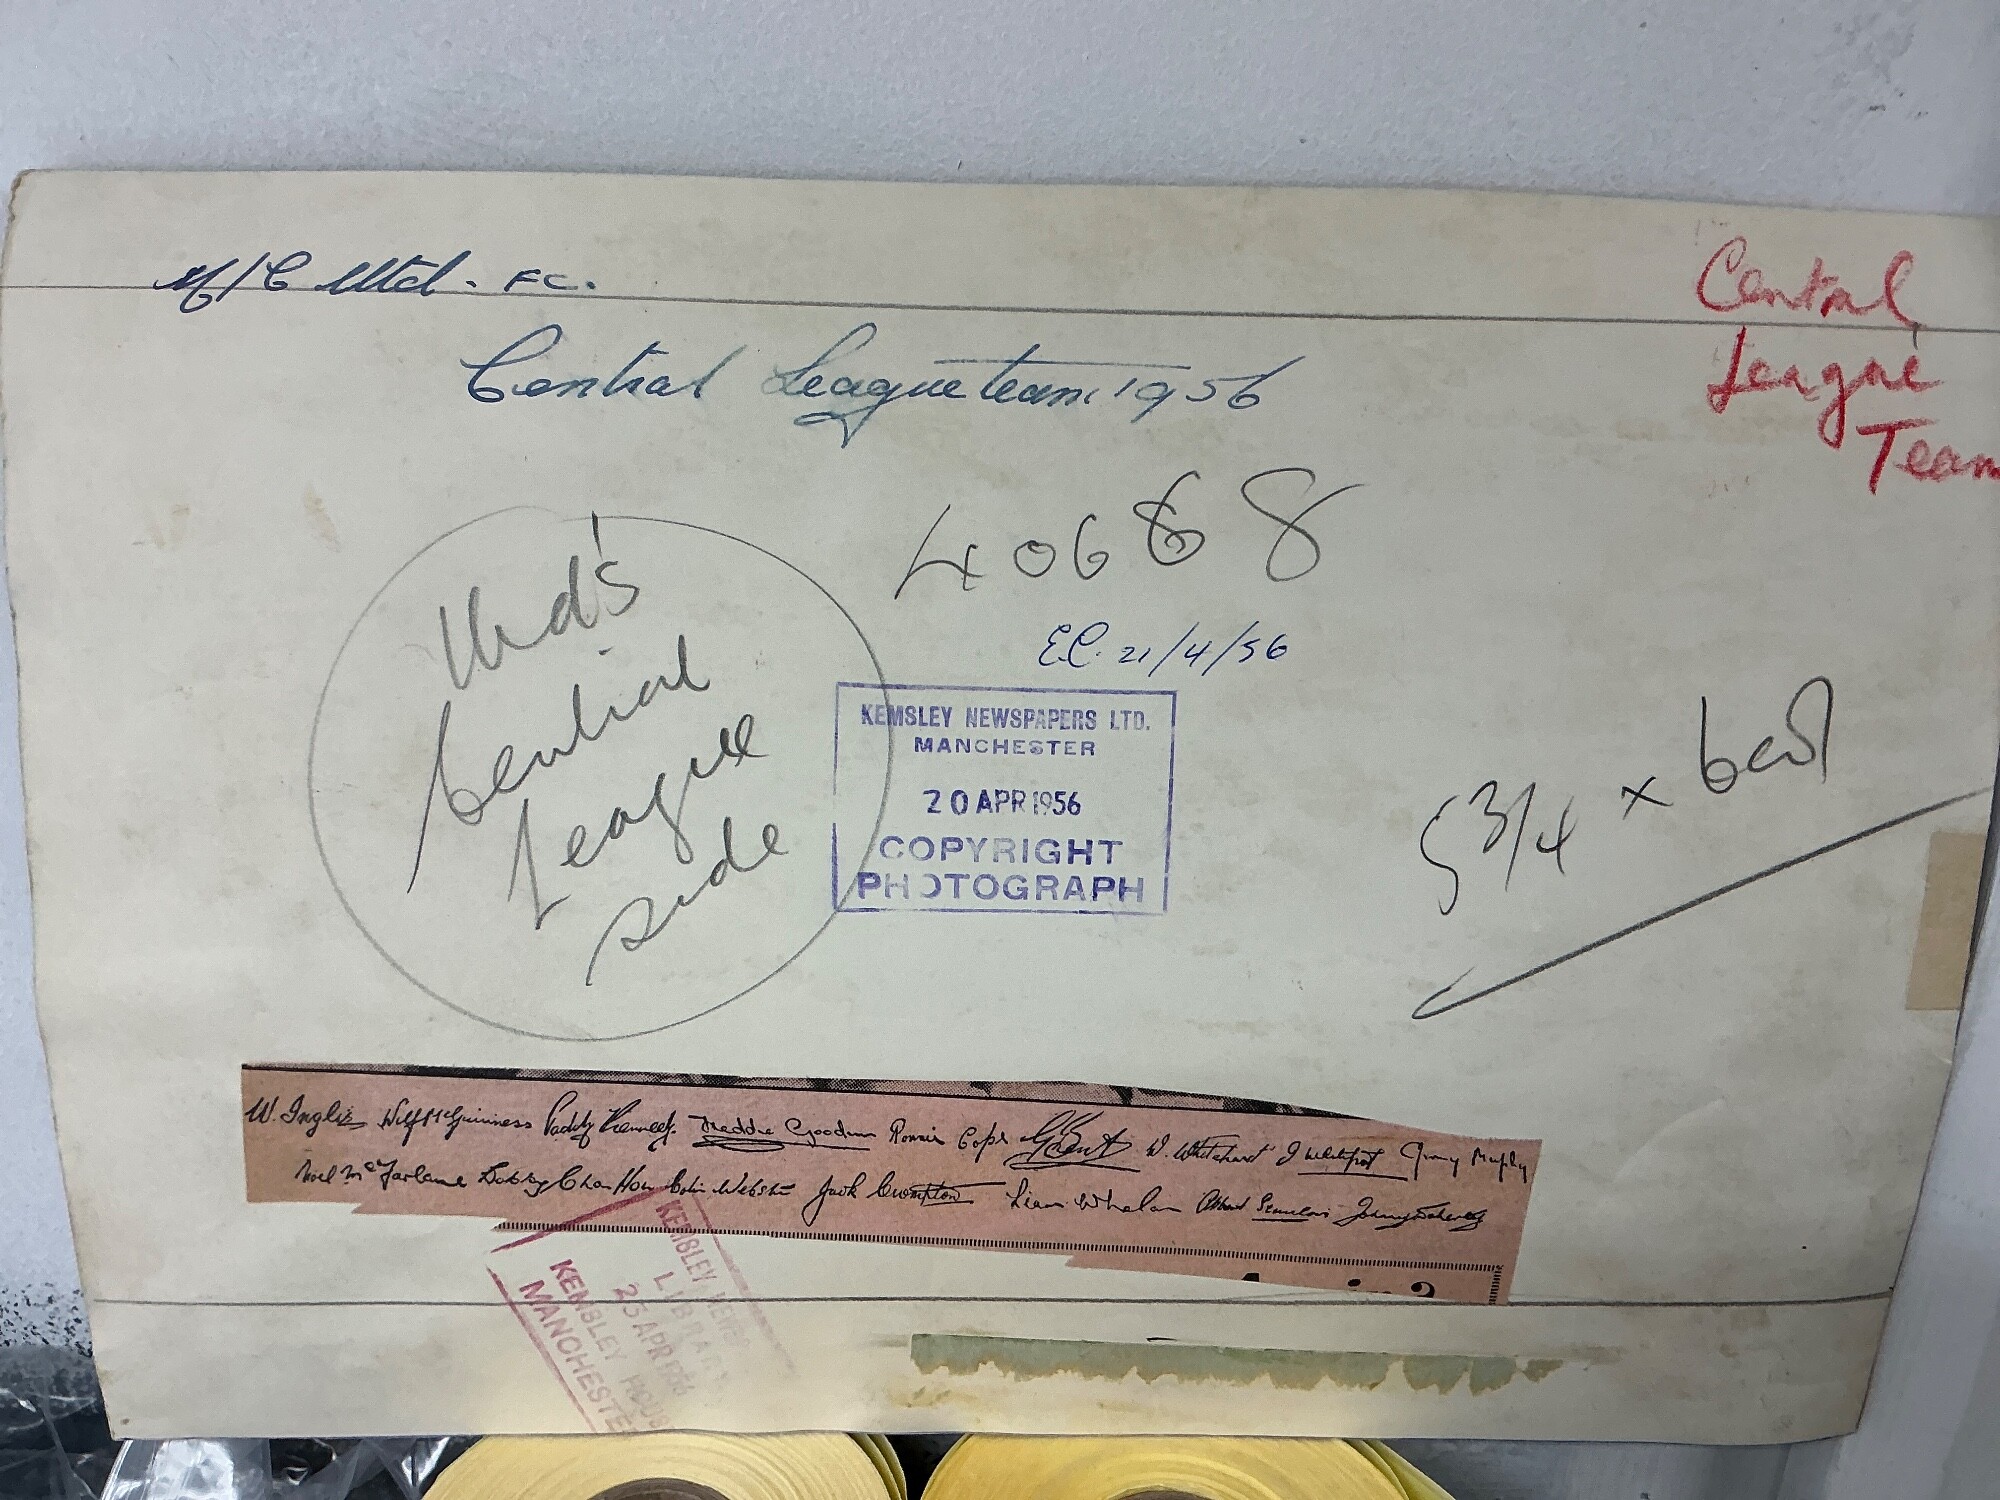 M/C Utd. FC.
Central League team 1956
Central
League
Team
40668
Utd's
Central
League
side
E.C. 21/4/56
KEMSLEY NEWSPAPERS LTD.
MANCHESTER
20 APR 1956
COPYRIGHT
PHOTOGRAPH
5 3/4 x
W. Inglis Wilf McGuinness Paddy Kennedy. Freddie Goodwin Ronnie Cope W. Whitehurst J Whitefoot Jimmy Murphy
Noel McFarlane Bobby Charlton Colin Webster Jack Crompton Liam Whelan Albert Scanlon Johnny Doherty
KEMSLEY NEWS
LIBRARY
23 APR 1956
KEMSLEY HOUSE
MANCHESTER